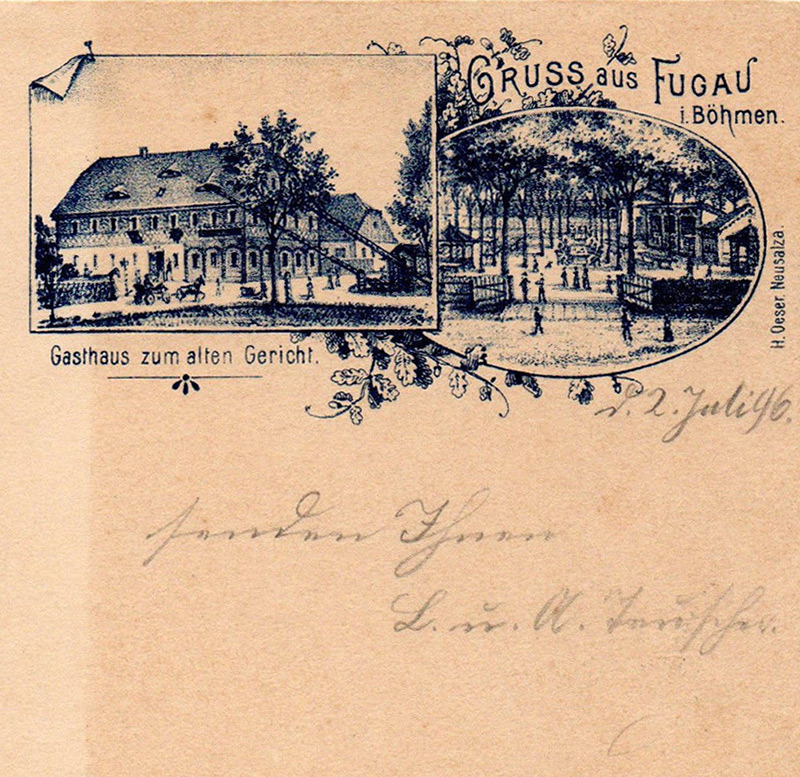 GRUSS aus FUGAU
i. Böhmen.
H. Oeser Neusalza.
Gasthaus zum alten Gericht.
d. 2. Juli 96.
senden Ihnen
L. u. A. Teuscher.